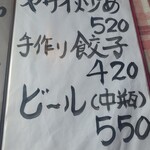 ヤサイ炒め
520
手作り餃子
420
ビール(中瓶)
550